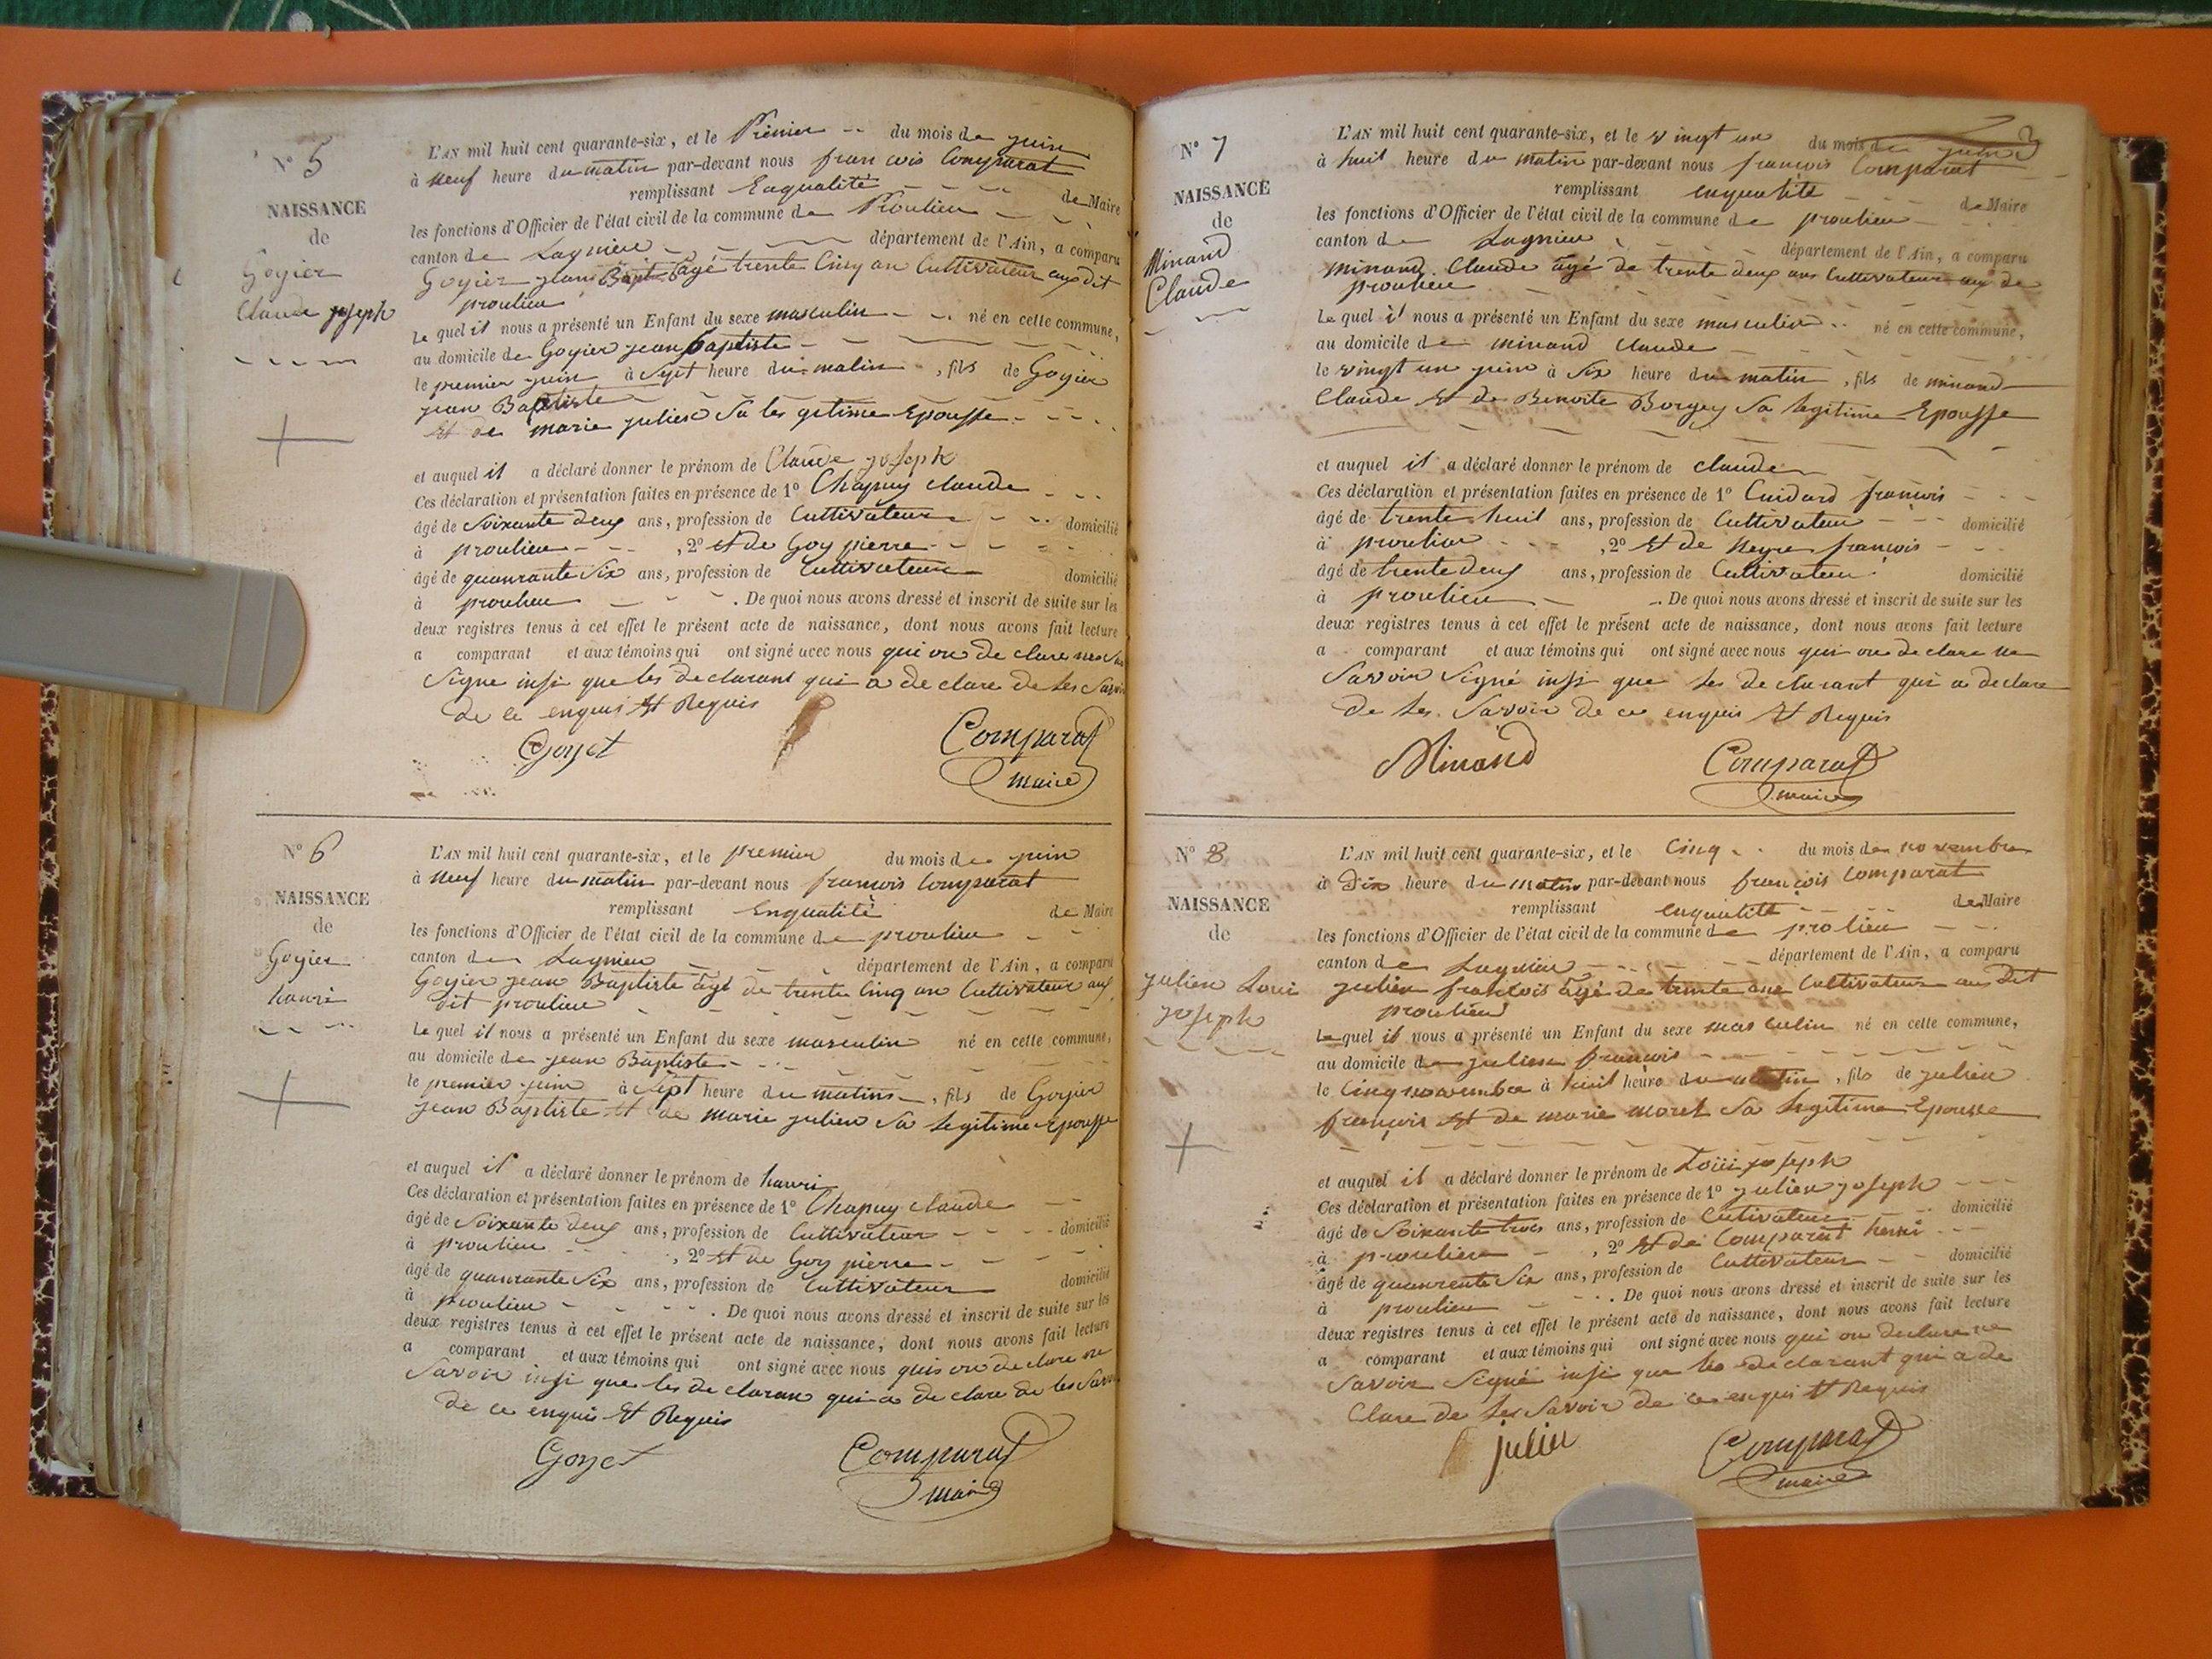 N° 5
NAISSANCE
de
Goyier
Claude joseph
L'AN mil huit cent quarante-six, et le Prémier du mois de juin
à Neuf heure du matin par-devant nous francois Comparat
remplissant Enqualité de Maire
les fonctions d'Officier de l'état civil de la commune de Proulieu
canton de Lagnieu département de l'Ain, a comparu
Goyier jean Bapt agé trente Cinq an Cultivateur aux dit
proulieu
Le quel il nous a présenté un Enfant du sexe masculin né en cette commune,
au domicile de Goyier jean baptiste
le premier juin à Sept heure du matin, fils de Goyier
jean Baptiste
Et de marie julien Sa les gitime Epousse
et auquel il a déclaré donner le prénom de Claude joseph
Ces déclaration et présentation faites en présence de 1° Chapuy claude
âgé de Soixante deux ans, profession de Cultivateur domicilié
à proulieu, 2° Et de Goy pierre
âgé de quanrante Six ans, profession de Cultivateur domicilié
à proulieu. De quoi nous avons dressé et inscrit de suite sur les
deux registres tenus à cet effet le présent acte de naissance, dont nous avons fait lecture
a comparant et aux témoins qui ont signé avec nous qui on de clare ne
Signe insi que les declarant qui a de clare de les Savoir
de ce enquis Et Requis
Goyet Comparat
maire
N° 6
NAISSANCE
de
Goyier
hanri
L'AN mil huit cent quarante-six, et le premier du mois de juin
à Neuf heure du matin par-devant nous francois Comparat
remplissant Enqualité de Maire
les fonctions d'Officier de l'état civil de la commune de proulieu
canton de Lagnieu département de l'Ain, a comparu
Goyier jean Baptiste agé de trente Cinq an Cultivateur aux
dit proulieu
Le quel il nous a présenté un Enfant du sexe masculin né en cette commune,
au domicile de jean Baptiste
le premier juin à Sept heure du matins, fils de Goyier
jean Baptiste Et de marie julien Sa legitime Epousse
et auquel il a déclaré donner le prénom de hanri
Ces déclaration et présentation faites en présence de 1° Chapuy claude
âgé de Soixante deux ans, profession de Cultivateur domicilié
à proulieu, 2° Et de Goy pierre
âgé de quanrante Six ans, profession de Cultivateur domicilié
à proulieu. De quoi nous avons dressé et inscrit de suite sur les
deux registres tenus à cet effet le présent acte de naissance, dont nous avons fait lecture
a comparant et aux témoins qui ont signé avec nous quis on de clare ne
Savoir insi que les de claran qui a de clare de les Savoir
de ce enquis Et Requis
Goyet Comparat
maire
N° 7
NAISSANCE
de
Minand
Claude
L'AN mil huit cent quarante-six, et le vingt un du mois de juin
à huit heure du matin par-devant nous françois Comparat
remplissant enqualité de Maire
les fonctions d'Officier de l'état civil de la commune de proulieu
canton de Lagnieu département de l'Ain, a comparu
minand Claude âgé de trente deux ans Cultivateur aux de
proulieu
Le quel il nous a présenté un Enfant du sexe masculin né en cette commune,
au domicile de minand Claude
le vingt un juin à Six heure du matin, fils de minand
Claude Et de Benoite Borgey Sa legitime Epousse
et auquel il a déclaré donner le prénom de claude
Ces déclaration et présentation faites en présence de 1° Cuidard francois
âgé de trente huit ans, profession de Cultivateur domicilié
à proulieu, 2° Et de Neyre françois
âgé de trente deux ans, profession de Cultivateur domicilié
à proulieu. De quoi nous avons dressé et inscrit de suite sur les
deux registres tenus à cet effet le présent acte de naissance, dont nous avons fait lecture
a comparant et aux témoins qui ont signé avec nous qui on declare ne
Savoir Signé insi que les declarant qui a declare
de les Savoir de ce enquis Et Requis
Minand Comparat
maire
N° 8
NAISSANCE
de
julien Loui
joseph
L'AN mil huit cent quarante-six, et le Cinq du mois de novembre
à Dix heure du matin par-devant nous françois Comparat
remplissant enqualité de Maire
les fonctions d'Officier de l'état civil de la commune de prolieu
canton de Lagnieu département de l'Ain, a comparu
julien francois agé de trente ans Cultivateur au Dit
proulieu
Le quel il nous a présenté un Enfant du sexe masculin né en cette commune,
au domicile de julien francois
le Cinq novembre à huit heure du matin, fils de julien
françois Et de marie moret Sa legitime Epousse
et auquel il a déclaré donner le prénom de Loüi joseph
Ces déclaration et présentation faites en présence de 1° julien joseph
âgé de Soixante trois ans, profession de Cultivateur domicilié
à proulieu, 2° Et de Comparat henri
âgé de quanrente Six ans, profession de Cultivateur domicilié
à proulieu. De quoi nous avons dressé et inscrit de suite sur les
deux registres tenus à cet effet le présent acte de naissance, dont nous avons fait lecture
a comparant et aux témoins qui ont signé avec nous qui on declare ne
Savoir Signé insi que les declarant qui a de
Clare de les Savoir de ce enquis Et Requis
julien Comparat
maire